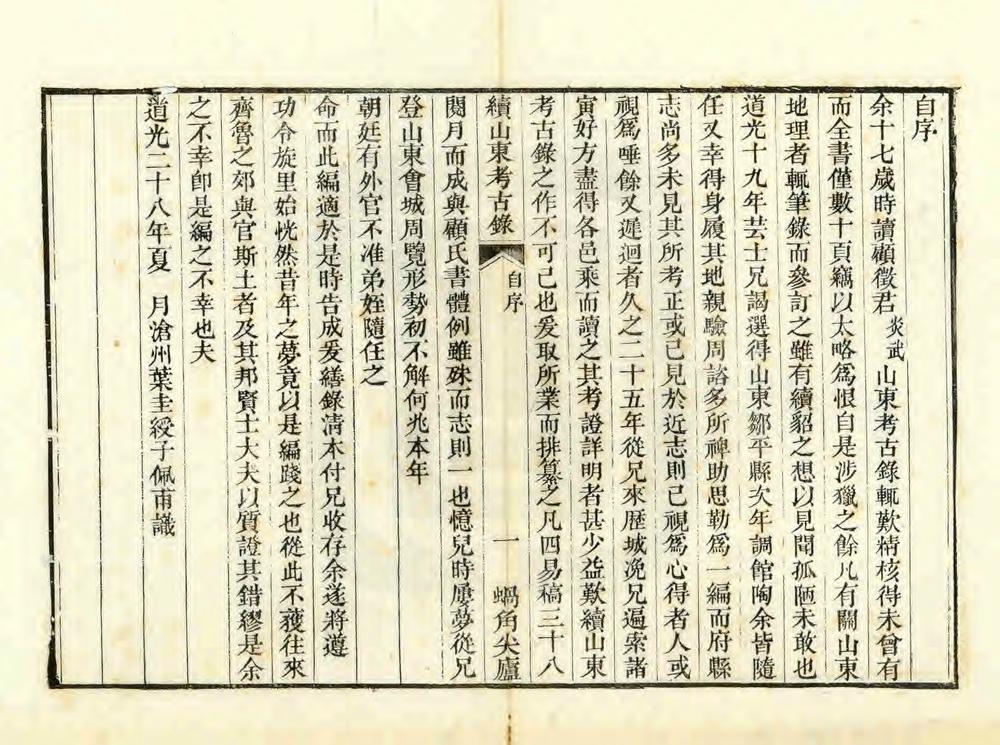 自序
余十七歲時讀顧徵君炎武山東考古錄輒歎精核得未曾有
而全書僅數十頁竊以太略爲恨自是涉獵之餘凡有關山東
地理者輒筆錄而參訂之雖有續貂之想以見聞孤陋未敢也
道光十九年芸士兄謁選得山東鄒平縣次年調館陶余皆隨
任又幸得身履其地親驗周諮多所禆助思勒爲一編而府縣
志尚多未見其所考正或已見於近志則已視爲心得者人或
視爲唾餘又遲迴者久之二十五年從兄來歷城浼兄遍索諸
寅好方盡得各邑乘而讀之其考證詳明者甚少益歎續山東
考古錄之作不可已也爰取所業而排纂之凡四易稿三十八
續山東考古錄 自序 一 蝸角尖廬
閱月而成與顧氏書體例雖殊而志則一也憶兒時屢夢從兄
登山東會城周覽形勢初不解何兆本年
朝廷有外官不准弟姪隨任之
命而此編適於是時告成爰繕錄清本付兄收存余遂將遵
功令旋里始恍然昔年之夢竟以是編踐之也從此不獲往來
齊魯之郊與官斯土者及其邦賢士大夫以質證其錯繆是余
之不幸卽是編之不幸也夫
道光二十八年夏 月滄州葉圭綬子佩甫識